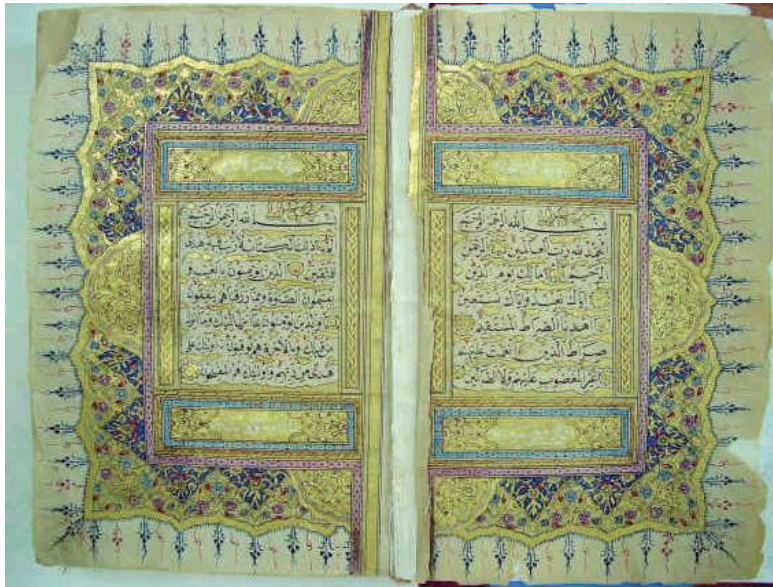 بسم الله الرحمن الرحيم
الحمد لله رب العالمين الرحمن
الرحيم مالك يوم الدين
اياك نعبد واياك نستعين
اهدنا الصراط المستقيم
صراط الذين انعمت عليهم
غير المغضوب عليهم ولا الضالين
بسم الله الرحمن الرحيم
الم ذلك الكتاب لا ريب فيه هدى
للمتقين الذين يؤمنون بالغيب و
يقيمون الصلوة ومما رزقناهم ينفقون
والذين يؤمنون بما انزل اليك وما انزل
من قبلك وبالاخرة هم يوقنون اولئك على
هدى من ربهم واولئك هم المفلحون